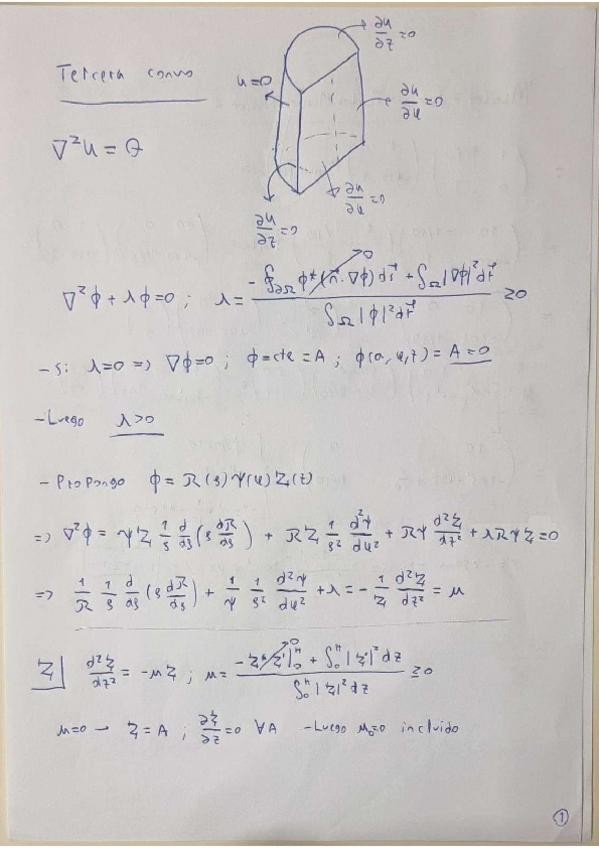 Tercera convo
∂u/∂z = 0
u=0
∂u/∂φ = 0
∇²u = 0
∂u/∂φ = 0
∂u/∂z = 0
∇²ϕ + λϕ = 0 ; λ = (-∮_∂Ω ϕ* (n⃗·∇ϕ) dr⃗ → 0 + ∫_Ω |∇ϕ|² dr⃗) / (∫_Ω |ϕ|² dr⃗) ≥ 0
- Si λ=0 => ∇ϕ=0 ; ϕ=cte = A ; ϕ(a, φ, z) = A = 0
- Luego λ>0
- Propongo ϕ = R(ρ) Ψ(φ) Z(z)
=> ∇²ϕ = ΨZ 1/ρ d/dρ (ρ dR/dρ) + RZ 1/ρ² d²Ψ/dφ² + RΨ d²Z/dz² + λRΨZ = 0
=> 1/R 1/ρ d/dρ (ρ dR/dρ) + 1/Ψ 1/ρ² d²Ψ/dφ² + λ = - 1/Z d²Z/dz² = μ
Z| d²Z/dz² = -μZ ; μ = (-Z* Z'|₀ᴴ → 0 + ∫₀ᴴ |Z'|² dz) / (∫₀ᴴ |Z|² dz) ≥ 0
μ=0 → Z = A ; ∂Z/∂z = 0 ∀A - Luego μ₀=0 incluido
1